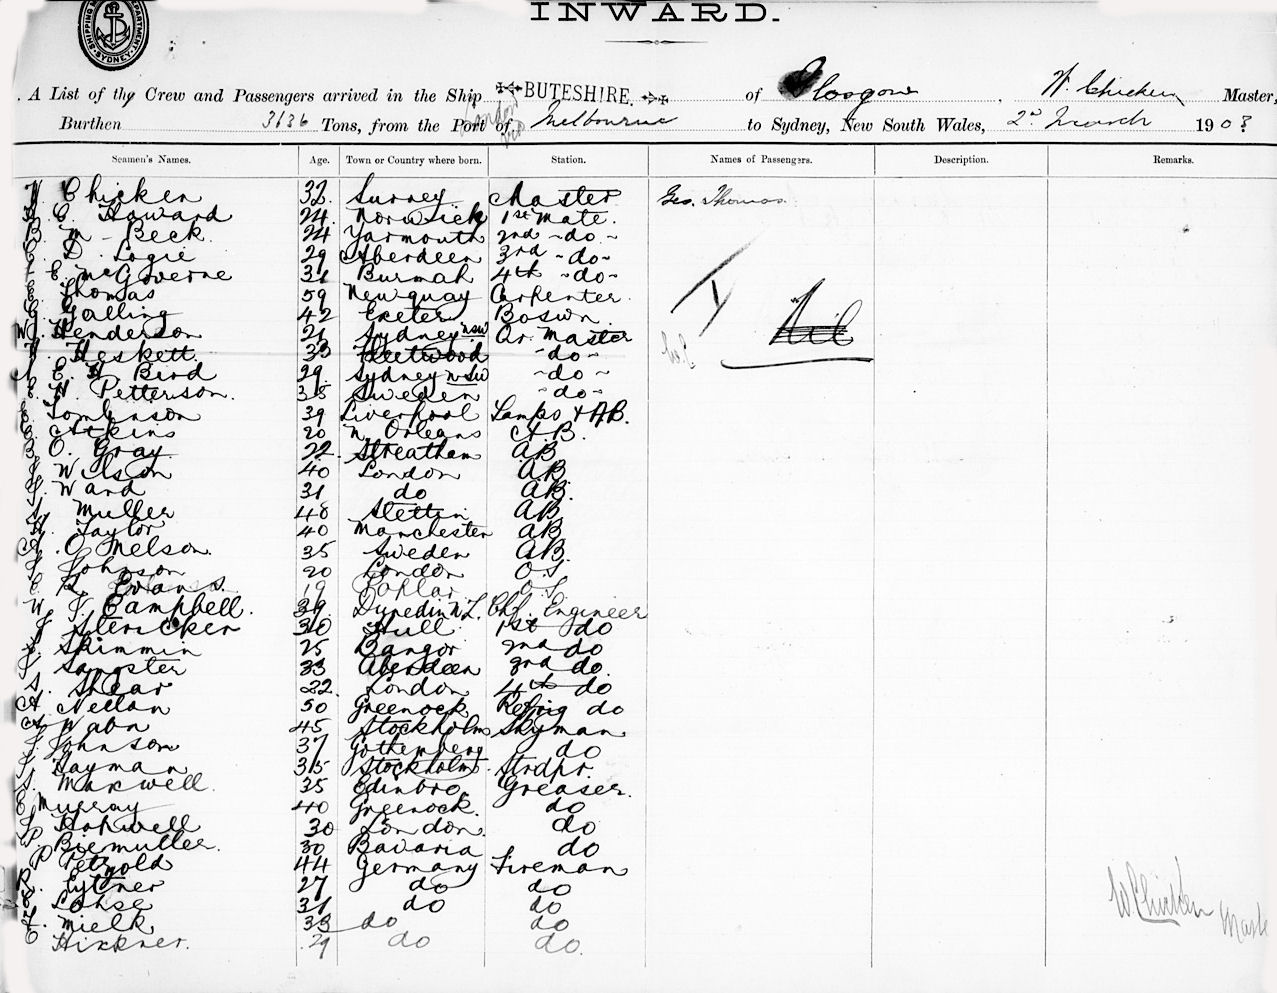 SHIPPING MASTER'S DEPARTMENT. SYDNEY
INWARD.
A List of the Crew and Passengers arrived in the Ship BUTESHIRE. of Glasgow, W. Chicken Master,
Burthen 3136 Tons, from the Port of London via Melbourne to Sydney, New South Wales, 2nd March 1903
Seamen's Names. Age. Town or Country where born. Station. Names of Passengers. Description. Remarks.
W. Chicken 32 Surrey Master Geo. Thomas
E. Howard 24 Norwich 1st Mate.
B. M. Beck 24 Yarmouth 2nd do
D. Logie 29 Aberdeen 3rd do
E. McGoverne 31 Burmah 4th do
Thomas 59 Newquay Carpenter
Galling 42 Exeter Bosun
W. Henderson 21 Sydney NSW Qr. Master
H. Heskett 33 Fleetwood do
E. H. Bird 29 Sydney NSW do
H. Petterson 38 Sweden do
Tomlinson 39 Liverpool Lamps & AB.
Atkins 20 N. Orleans A.B.
O. Gray 22 Streatham AB
Wilson 40 London AB
Ward 31 do AB.
Muller 48 Stettin AB
H. Taylor 40 Manchester AB
O. Nelson 35 Sweden AB.
Johnson 20 London O.S.
Evans 19 Poplar O.S.
W. J. Campbell 39 Dunedin N.Z. Chf. Engineer
J. Stericker 30 Hull 1st do
Skimmin 25 Bangor 2nd do
Sangster 33 Aberdeen 3rd do
S. Shear 22 London 4th do
A. Nellan 50 Greenock Refrig do
Wabn 45 Stockholm Skyman
J. Johnson 37 Gothenberg do
Hayman 35 Stockholm Strdpr.
Maxwell 35 Edinbro Greaser.
Murray 40 Greenock do
Hopwell 30 London do
Biemuller 30 Bavaria do
P. Petzold 44 Germany Fireman
Eytner 27 do do
Lohse 31 do do
Mielk 33 do do
Hirkner 29 do do
Nil
W Chicken